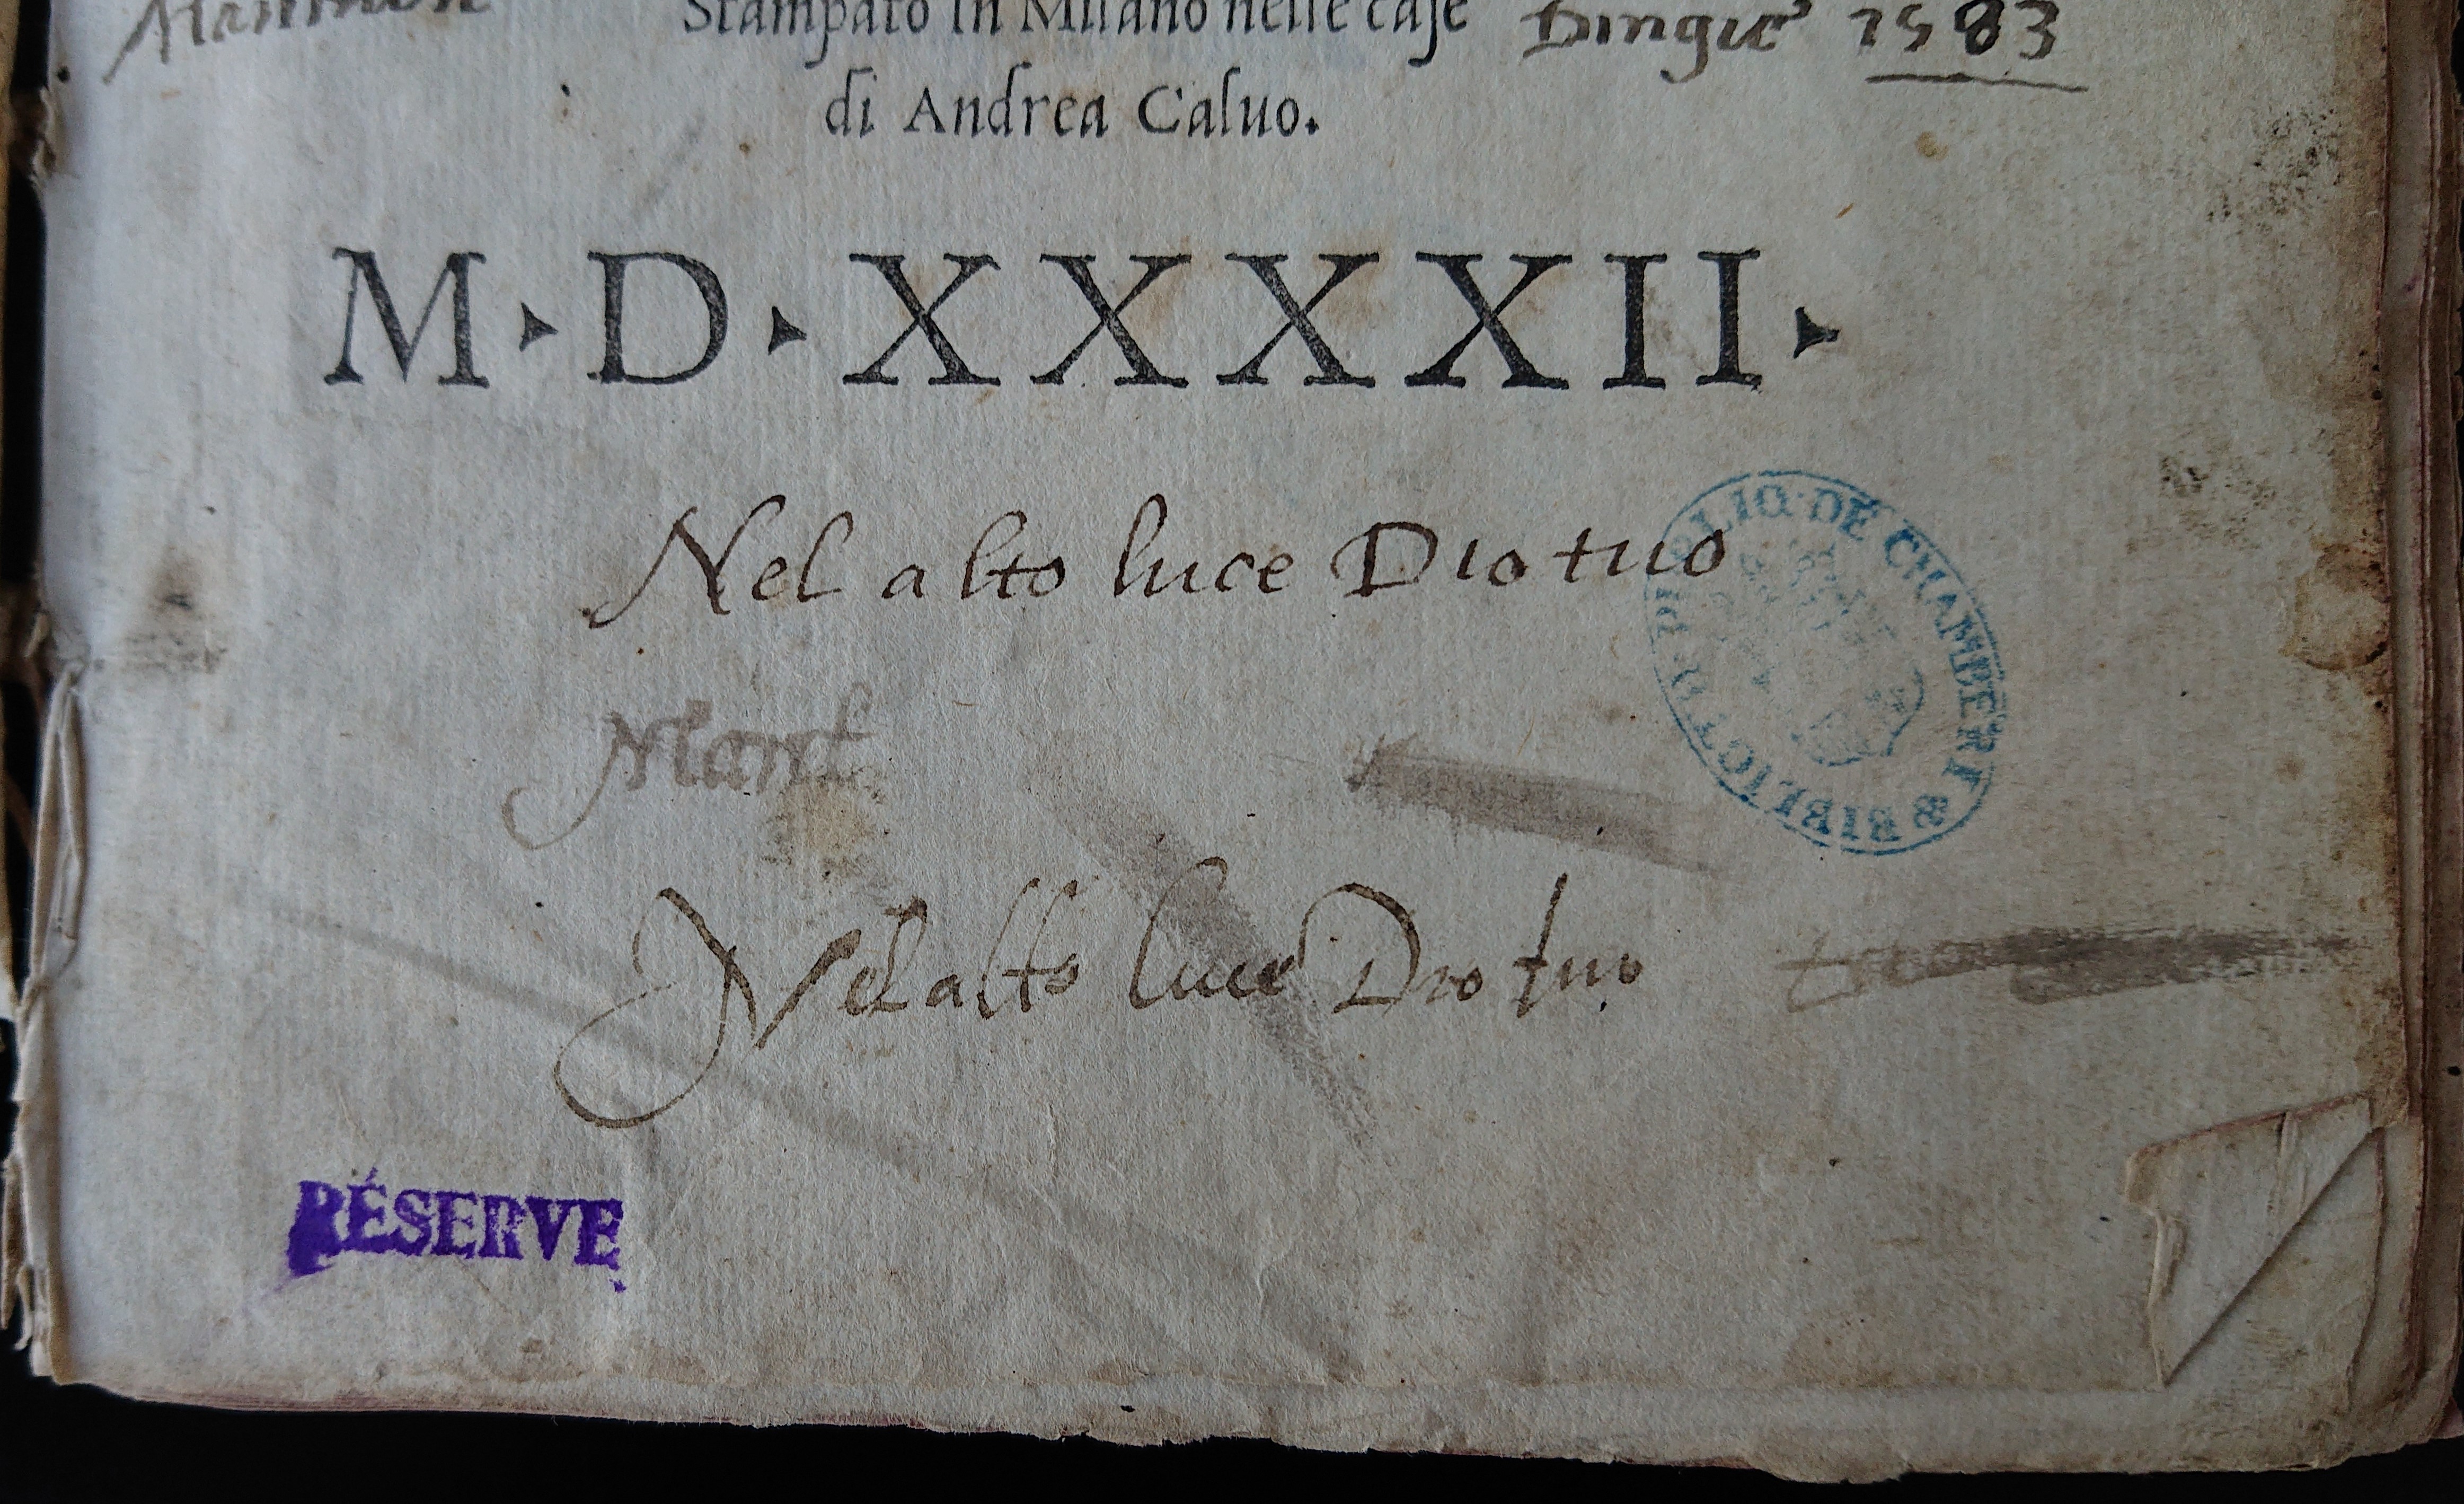 Stampato in Milano nelle case
1583
di Andrea Caluo.
M▸D▸XXXXII▸
Nel alto luce Dio tuo
BIBLIOT PUBLIQ. DE CHAMBERI
Mant
Nel alto luce Dio tuo
RÉSERVE